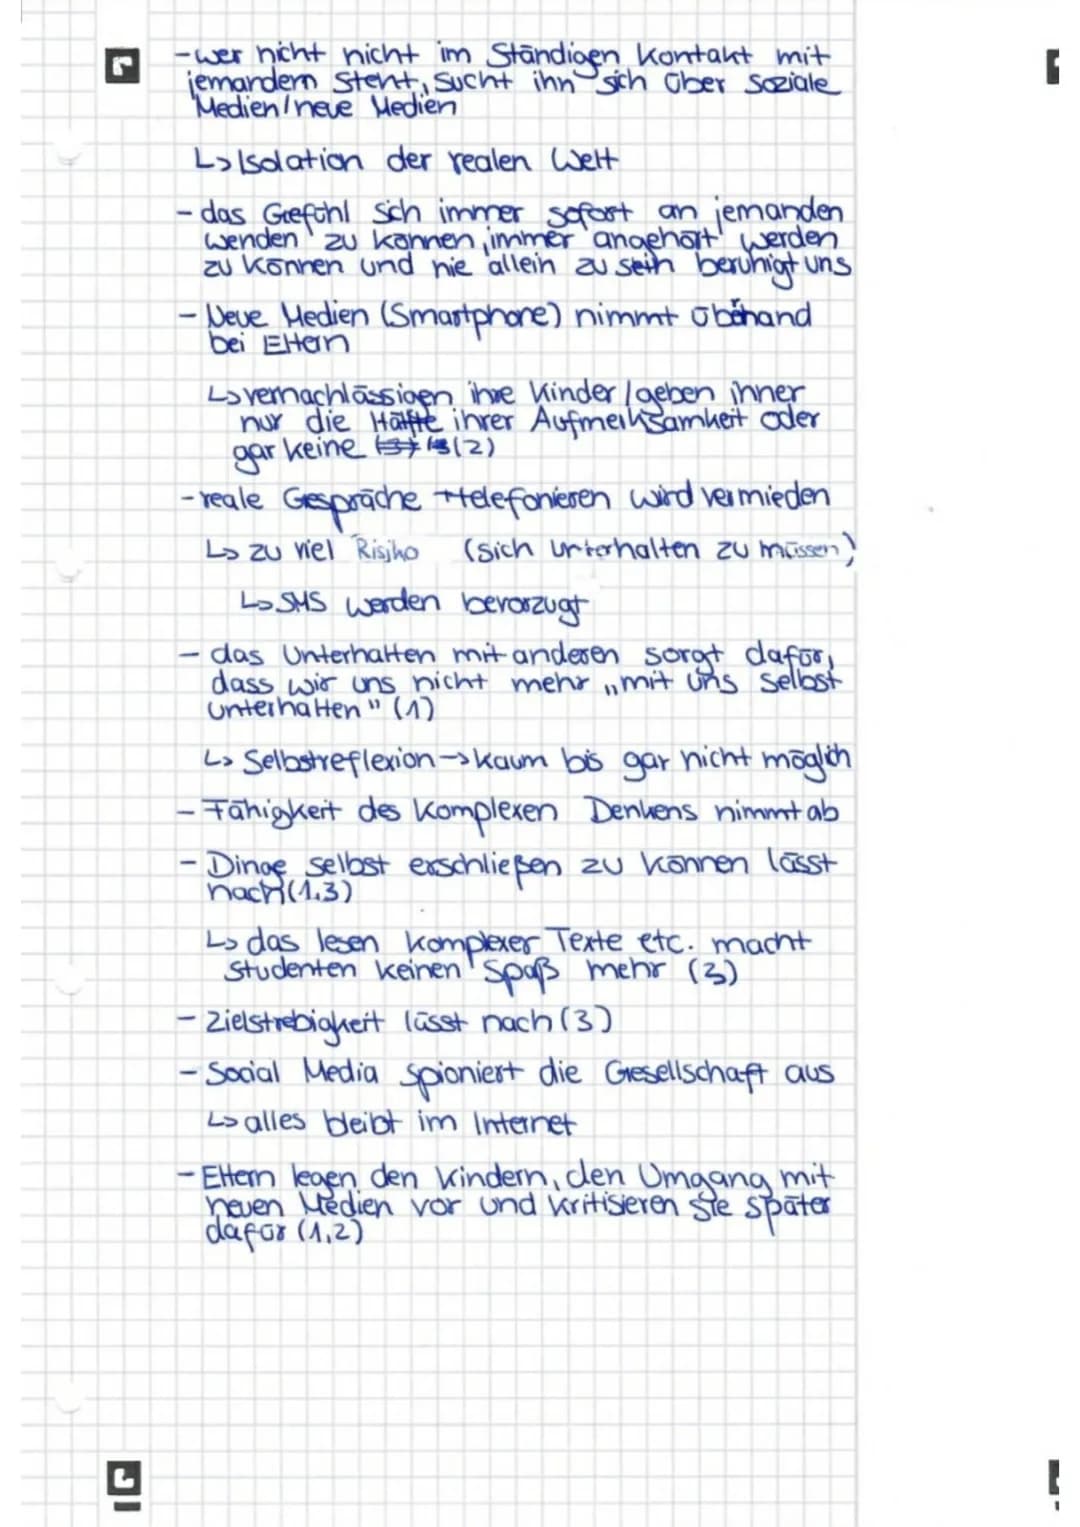 -wer nicht nicht im Ständigen Kontakt mit
jemandem steht, sucht ihn sich über Soziale
Medien/neue Medien
↳Isolation der realen Welt
- das Gefühl sich immer sofort an jemanden
wenden zu können, immer angehört werden
zu können und nie allein zu sein beruhigt uns
- Neue Medien (Smartphone) nimmt überhand
bei Eltern
↳vernachlässigen ihre Kinder/geben ihner
nur die Hälfte ihrer Aufmerksamkeit oder
gar keine (2)
-reale Gespräche +telefonieren wird vermieden
↳ zu viel Risiko (sich unterhalten zu müssen)
↳SMS werden bevorzugt
- das Unterhalten mit anderen sorgt dafür,
dass wir uns nicht mehr „mit uns selbst
unterhalten" (1)
↳ Selbstreflexion→kaum bis gar nicht möglich
- Fähigkeit des komplexen Denkens nimmt ab
- Dinge selbst erschließen zu können lässt
nach(1,3)
↳ das lesen komplexer Texte etc. macht
Studenten keinen Spaß mehr (3)
- Zielstrebigkeit lässt nach (3)
- Social Media spioniert die Gesellschaft aus
↳alles bleibt im Internet
- Eltern legen den Kindern, den Umgang mit
neuen Medien vor und kritisieren sie später
dafür (1,2)